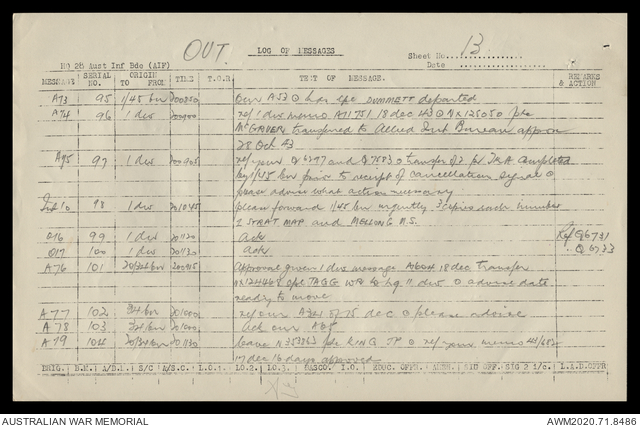 OUT.
LOG OF MESSAGES
HQ 28 Aust Inf Bde (AIF)
Sheet No. 13
Date
MESSAGE SERIAL NO. ORIGIN TO FROM TIME T.O.R. TEXT OF MESSAGE. REMARKS & ACTION
A73 95 1/45 bn 200850 Our A53 O has cpl DUMMETT departed
A74 96 1 div 200900 ref 1 div memo A71751 18 dec 43 O NX125050 pte
McGAVERN transferred to Allied Bureau approx
28 Oct 43
A95 97 1 div 200905 ref yours Q6297 and Q7583 O transfer of completed
by 1/45 bn prior to receipt of cancellation signal O
please advise what action necessary
98 1 div 201045 please forward 1/45 bn urgently 3 copies each number
2 STRAT MAP and MELLONG M.S.
O16 99 1 div 201120 ack Ref Q6731
O17 100 1 div 201130 ack " Q6733
A76 101 20/34 bn 200915 Approval given 1 div message 18 dec transfer
NX124468 cpl TAGG to hq 11 div O advise date
ready to move
A77 102 34 bn 201000 ref our of 15 dec O please advise
A78 103 34 bn 201000 ack our
A79 104 20/34 bn 201130 leave pte KING O ref your memo
17 dec 16 days approved
BRIG. B.M. A/B.M. S/C A/S.C. L.O.1 L.O.2 L.O.3 GASCO. I.O. EDUC. OFFR. SIG OFF. SIG 2 i/c. L.A.D.OFFR
AUSTRALIAN WAR MEMORIAL
AWM2020.71.8486